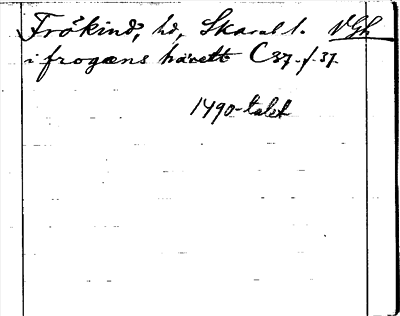 Frökind, hd, Skarab l. VGh
i frogæns hærett C 37 f. 37
1490-talet